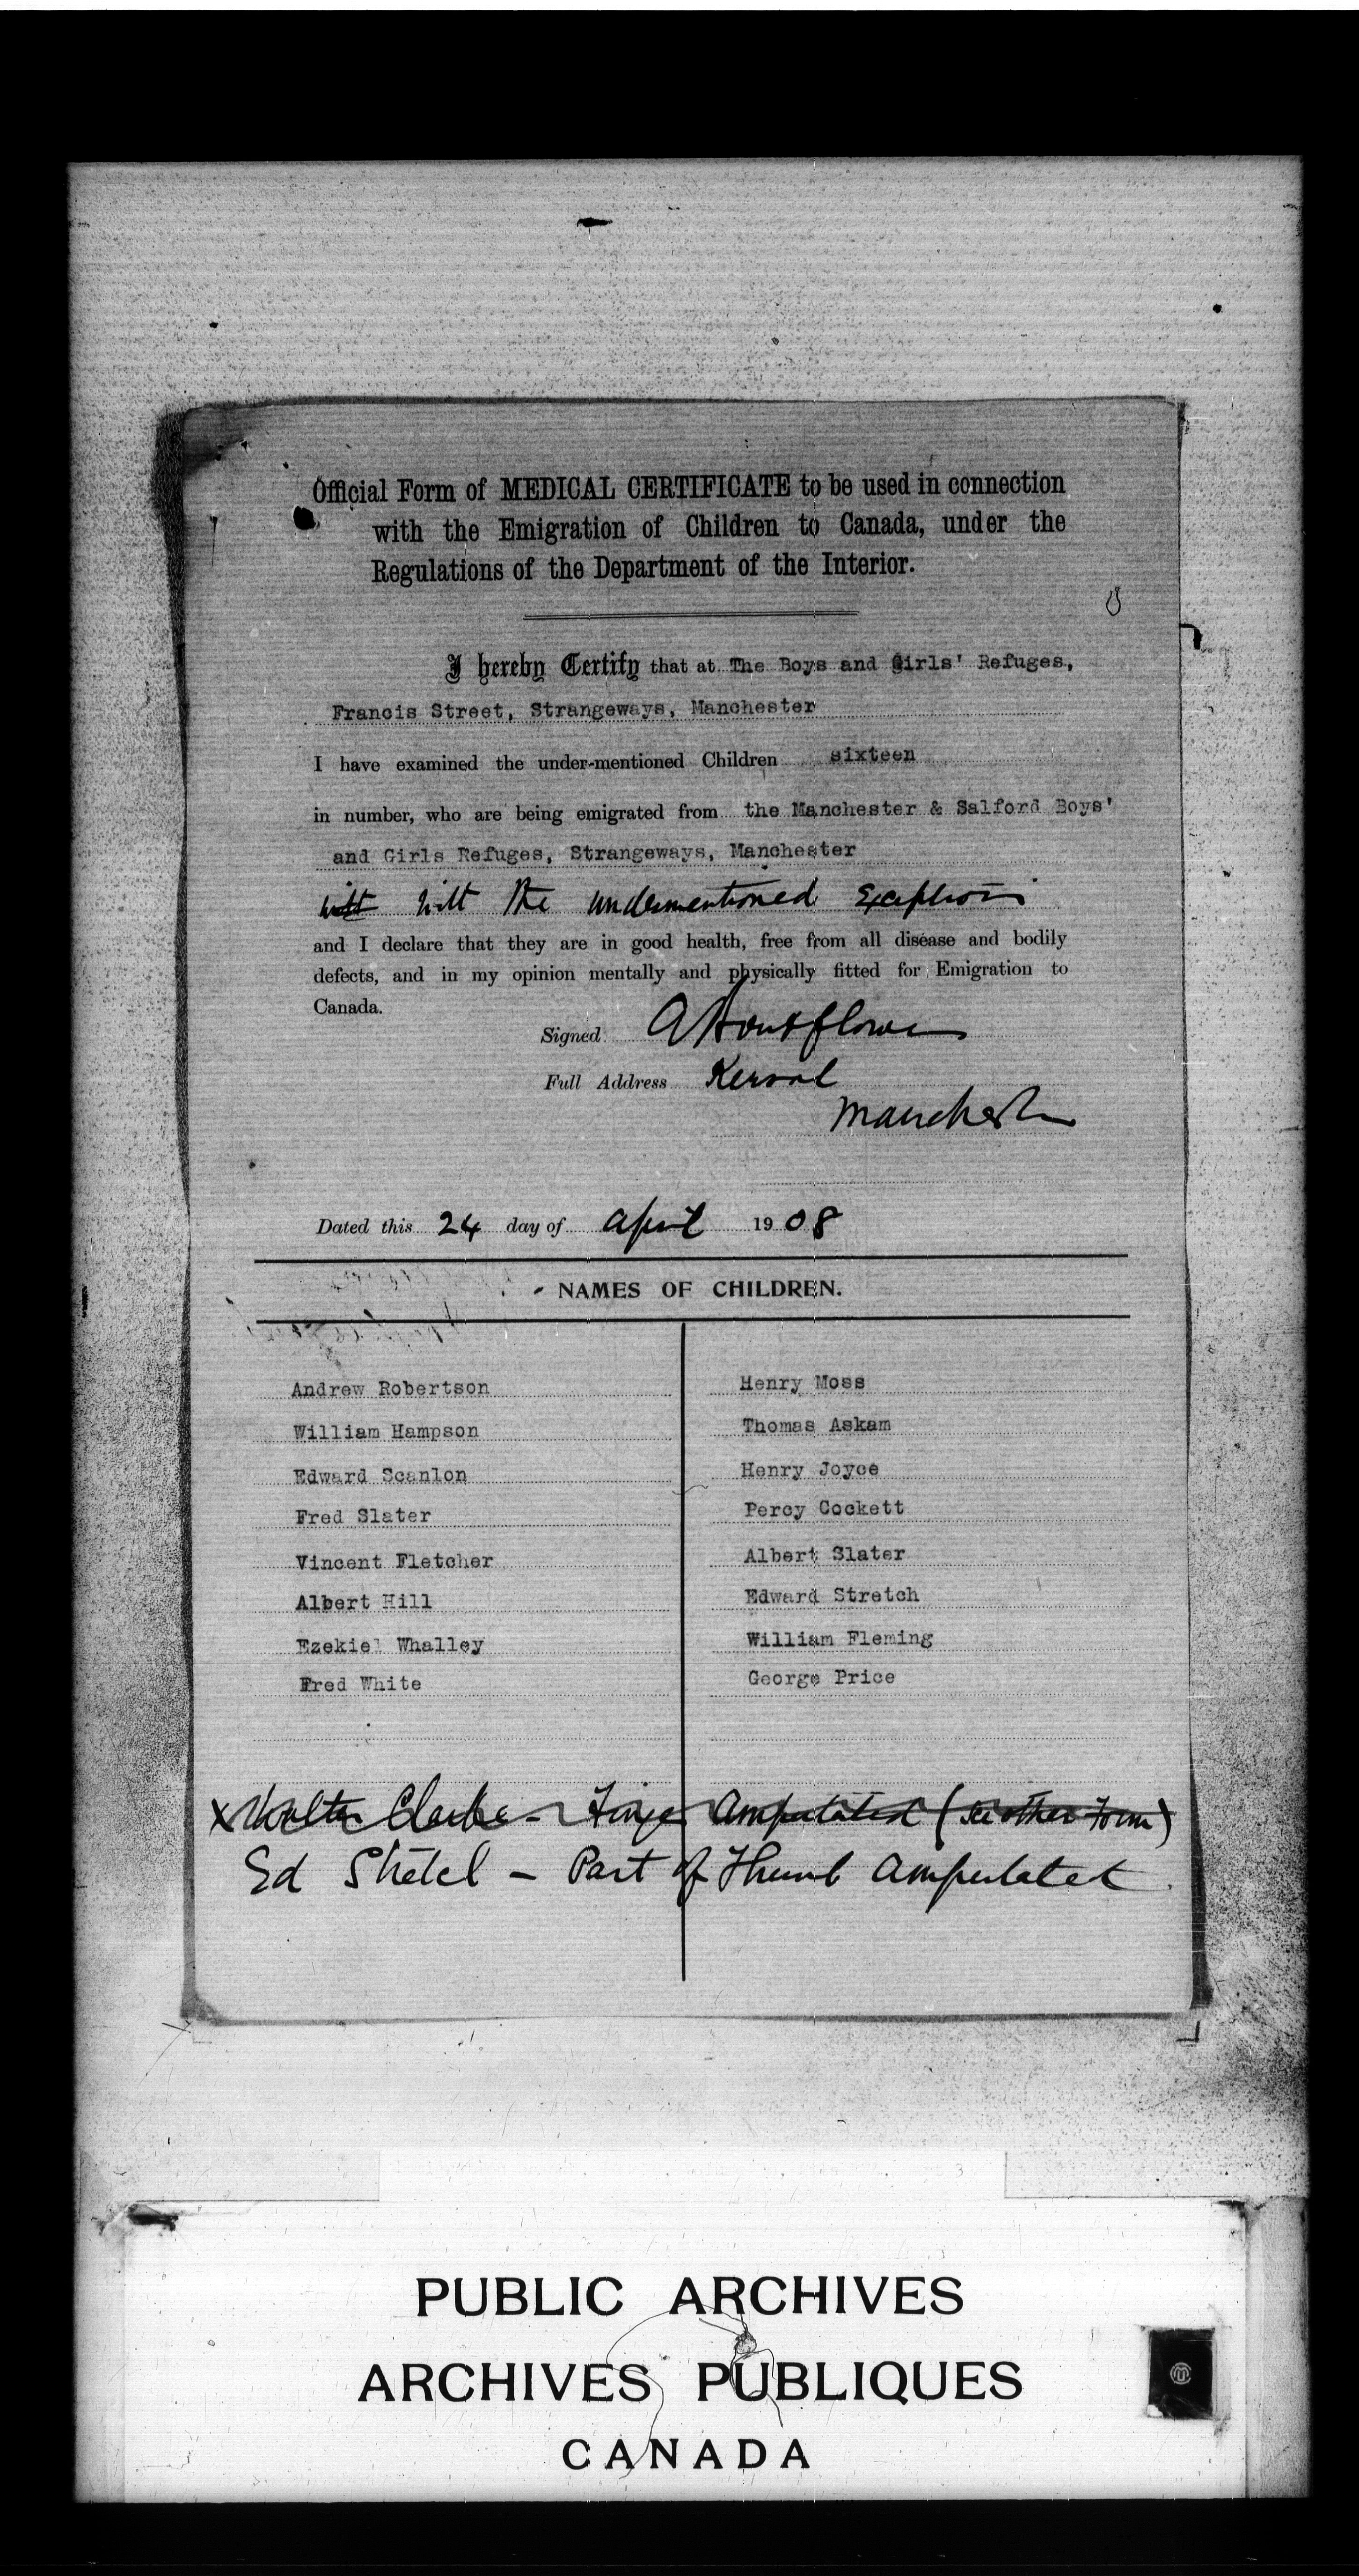 Official Form of MEDICAL CERTIFICATE to be used in connection
with the Emigration of Children to Canada, under the
Regulations of the Department of the Interior.
I hereby Certify that at The Boys and Girls' Refuges,
Francis Street, Strangeways, Manchester
I have examined the under-mentioned Children sixteen
in number, who are being emigrated from the Manchester & Salford Boys'
and Girls Refuges, Strangeways, Manchester
with with the undermentioned exceptions
and I declare that they are in good health, free from all disease and bodily
defects, and in my opinion mentally and physically fitted for Emigration to
Canada.
Signed A Boutflower
Full Address Kersal
Manchester
Dated this 24 day of April 1908
NAMES OF CHILDREN.
Andrew Robertson
William Hampson
Edward Scanlon
Fred Slater
Vincent Fletcher
Albert Hill
Ezekiel Whalley
Fred White
Henry Moss
Thomas Askam
Henry Joyce
Percy Cockett
Albert Slater
Edward Stretch
William Fleming
George Price
x Walter Clarke - Finger Amputated (see other Form)
Ed Stretch - Part of Thumb Amputated
PUBLIC ARCHIVES
ARCHIVES PUBLIQUES
CANADA